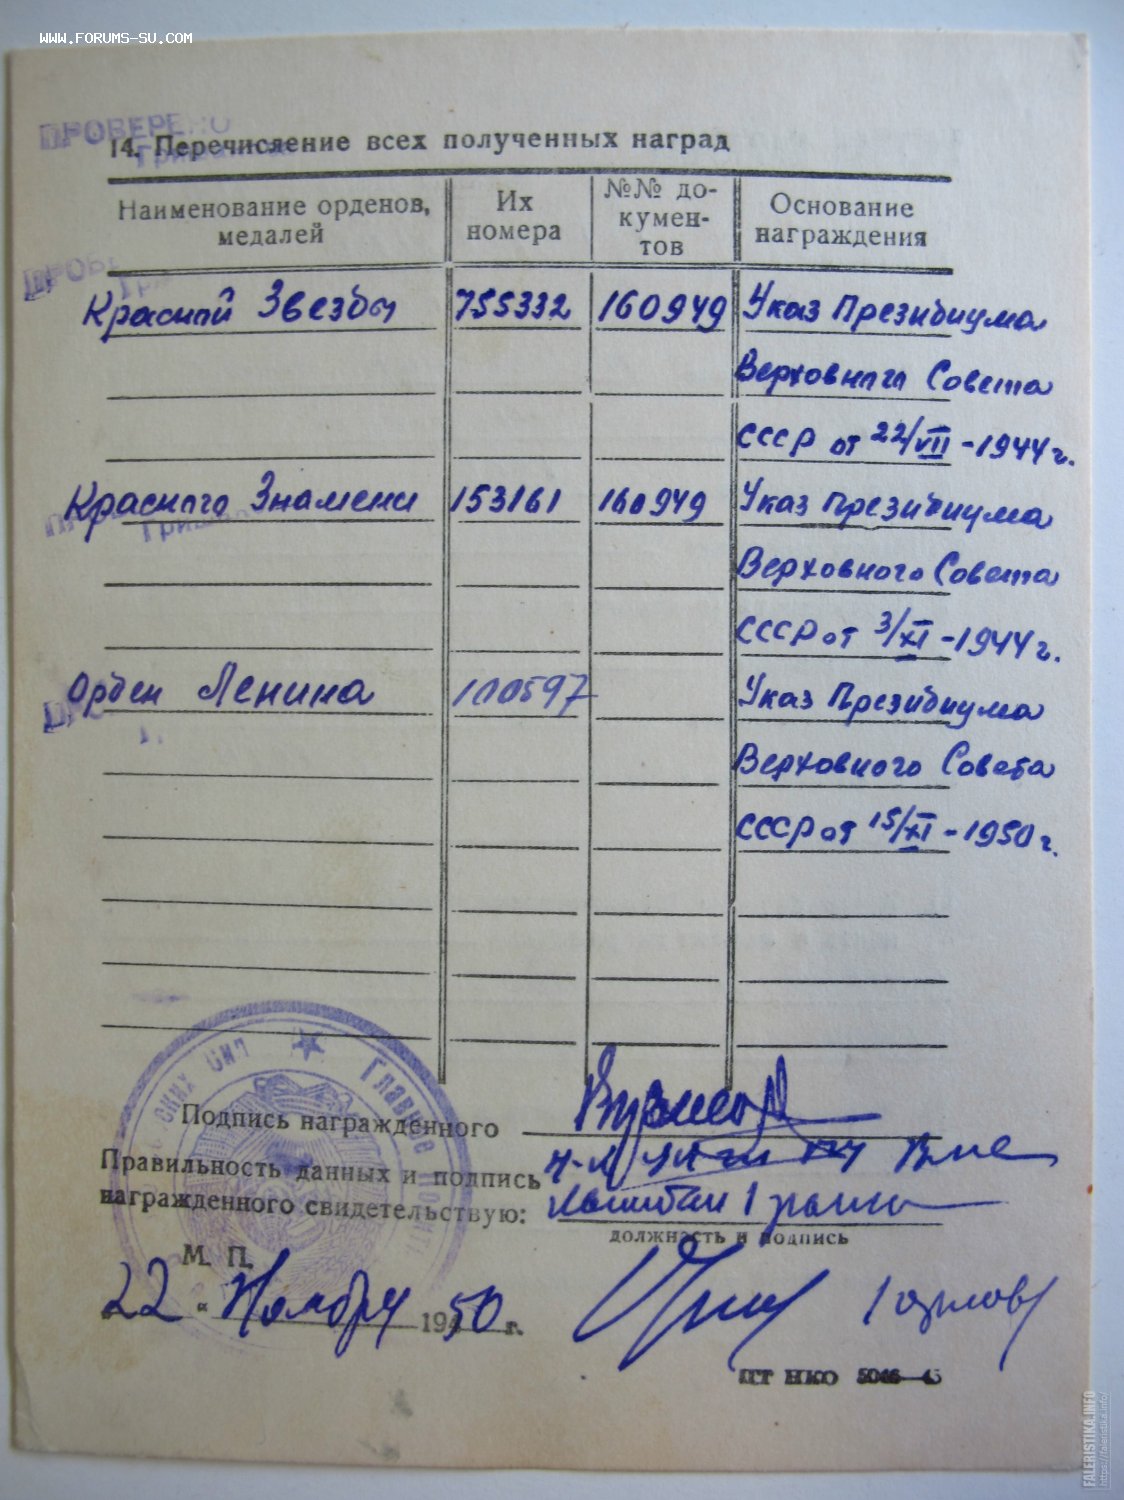 WWW.FORUMS-SU.COM
ПРОВЕРЕНО
14. Перечисление всех полученных наград
Наименование орденов, медалей
Их номера
№№ документов
Основание награждения
Красной Звезды 755332 160949 Указ Президиума
Верховного Совета
СССР от 22/VII-1944г.
Красного Знамени 153161 160949 Указ Президиума
Верховного Совета
СССР от 3/XI-1944г.
Орден Ленина 110597 Указ Президиума
Верховного Совета
СССР от 15/XI-1950г.
Главное
Подпись награжденного
Правильность данных и подпись
награжденного свидетельствую:
должность и подпись
М. П.
22 " Ноября 1950 г.
ПТ НКО
FALERISTIKA.INFO
https://faleristika.info/